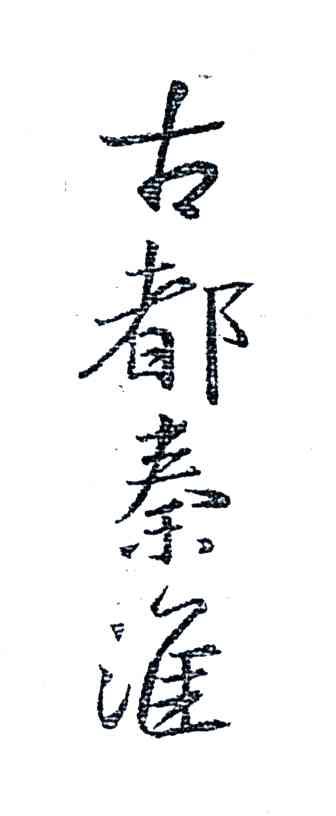 古都秦淮